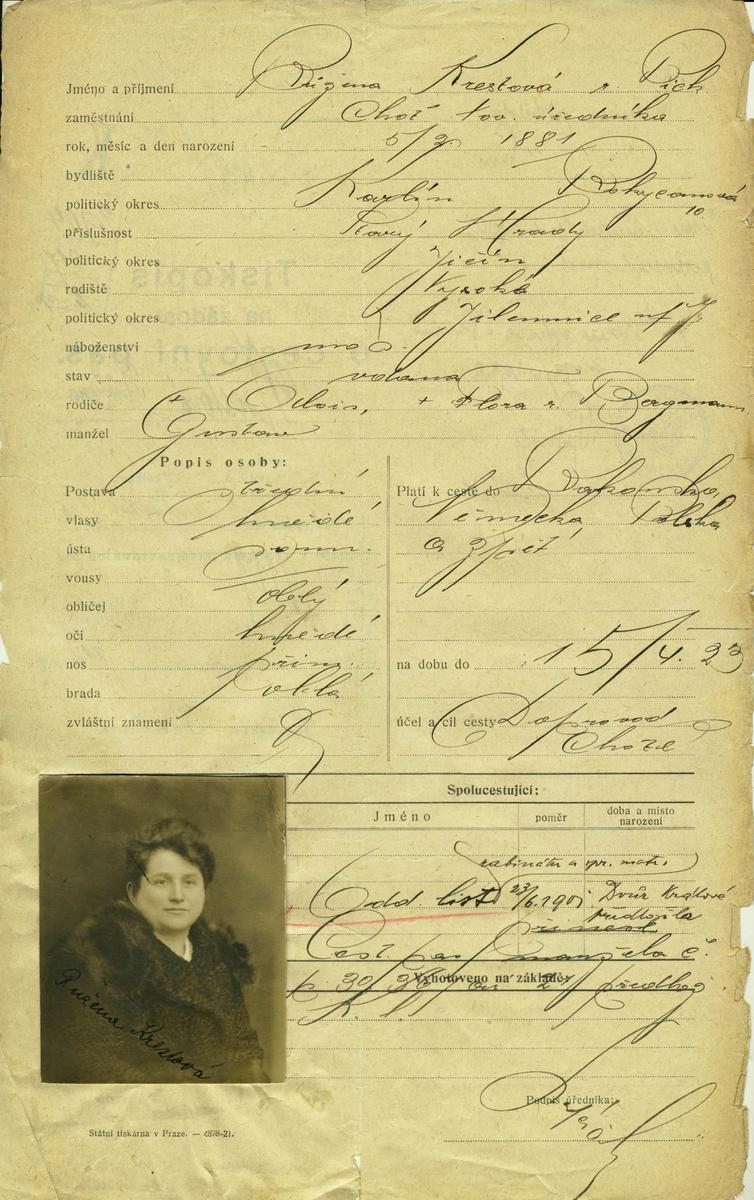 Jméno a příjmení Růžena Krestová r. Pick
zaměstnání Choť tov. úředníka
rok, měsíc a den narození 5/2 1881
bydliště
politický okres Karlín Rokycanova 10.
příslušnost Starý Hrady
politický okres Jičín
rodiště Vysoké
politický okres Jilemnice n/J
náboženství mos.
stav vdaná
rodiče + Alois, + Flora r. Bergmann
manžel Gustav
Popis osoby:
Postava střední
vlasy hnědé
ústa norm.
vousy
obličej oblý
oči hnědé
nos přim.
brada oblá
zvláštní znamení
Platí k cestě do Rakouska,
Německa Polska
a zpět
na dobu do 15/4. 23
účel a cíl cesty Doprovod
Chotě
Spolucestující:
Jméno poměr doba a místo narození
rabinátu a spr. matr.
Odd. list 23/6.1901 Dvůr Králové
předložila
Cest. pas manžela č.
p. 30/36 předlož.
Vyhotoveno na základě:
Růžena Krestová
Podpis úředníka:
Státní tiskárna v Praze. — 4898-21.